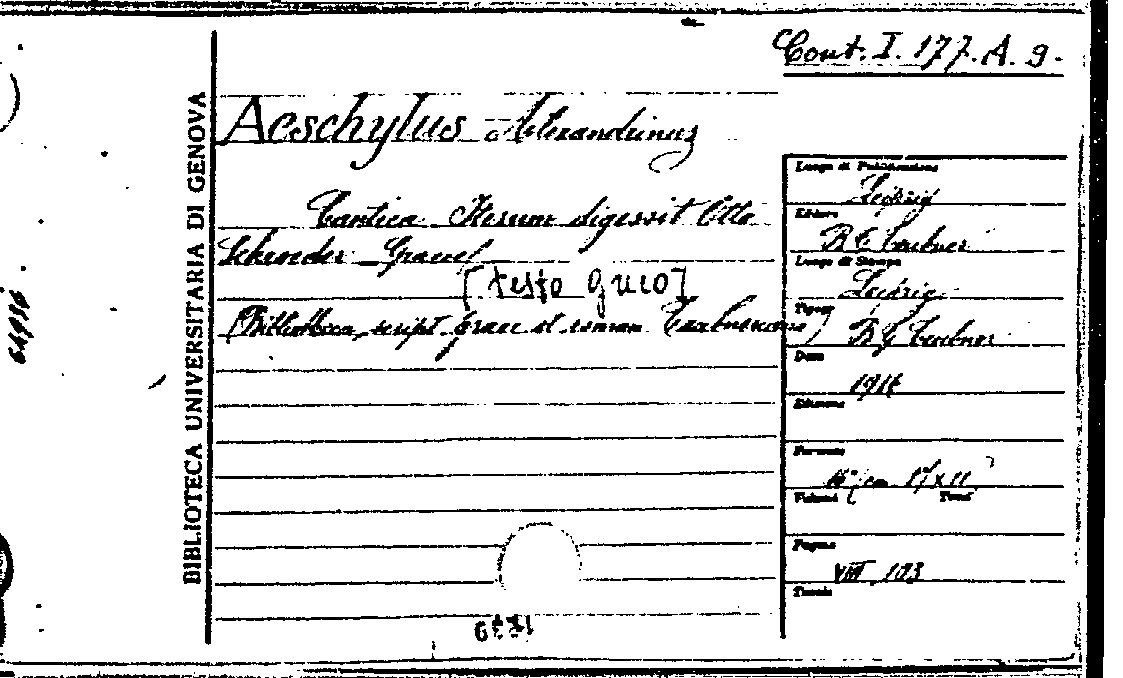 Cont. I. 177. A. 9.
BIBLIOTECA UNIVERSITARIA DI GENOVA
Aeschylus Alexandrinus
Cantica Iterum digessit Otto
Schroeder Graecl
[testo greco]
(Bibliotheca script. Graec et roman Teubneriana)
Luogo di Pubblicazione
Leipzig
Editore
B G Teubner
Luogo di Stampa
Leipzig
B G Teubner
Data
Edizione
Formato
Volumi Tomi
Pagine
VIII, 103
Tavole